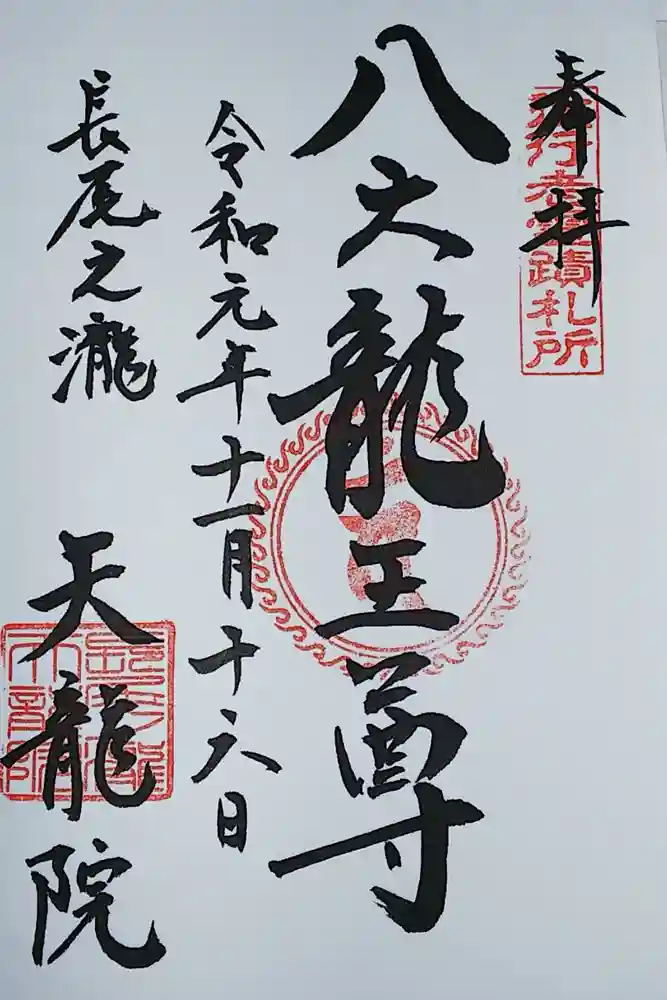 奉拝
行者霊蹟札所
八大龍王尊
令和元年十一月十六日
長尾之瀧
天龍院